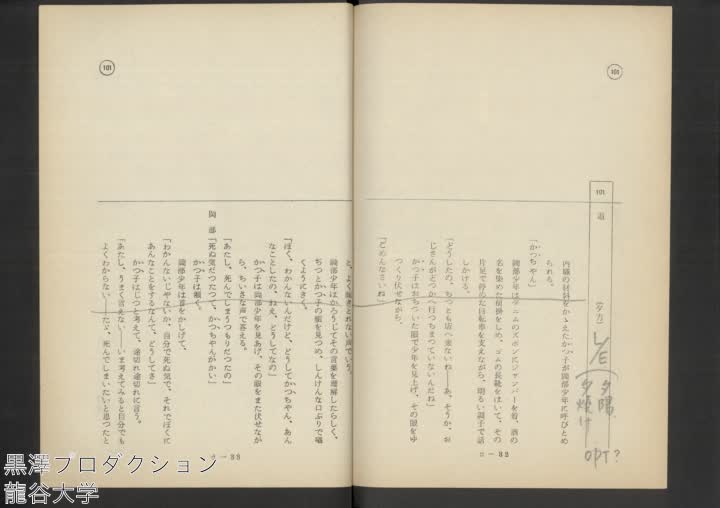 101
101 道 (夕方) L/E 夕陽 夕焼け OPT?
内職の材料をかゝえたかつ子が岡部少年に呼びとめ
られる。
「かつちゃん」
岡部少年はデニムのズボンにジャンパーを着、酒の
名を染めた前掛をしめ、ゴムの長靴をはいて、その
片足で停めた自転車を支えながら、明るい調子で話
しかける。
「どうしたの、ちつとも店へ来ないね――あ、そうか、お
じさんがどつかへ行つちまつていないんだね」
かつ子はおちついた眼で少年を見上げ、その眼をゆ
つくり伏せながら、
「ごめんなさいね」
ニ―32
101
と、よく聴きとれない声でいう。
岡部少年はかろうじてその言葉を理解したらしく、
ぢつとかつ子の顔を見つめ、しんけんな口ぶりで囁
くようにきく。
「ぼく、わかんないんだけど、どうしてかつちゃん、あん
なことしたの、ねえ、どうしてなの」
かつ子は岡部少年を見あげ、その眼をまた伏せなが
ら、ちいさな声で答える。
「あたし、死んでしまうつもりだつたの」
岡部「死ぬ気だつたつて、かつちゃんがかい」
かつ子は頷く。
岡部少年は首をかしげて、
「わかんないじゃないか、自分で死ぬ気で、それでぼくに
あんなことをするなんて、どうしてさ」
かつ子はじつと考えて、途切れ途切れに言う。
「あたし、うまく言えない――いま考えてみると自分でも
よくわからない――たゞ、死んでしまいたいと思つたと
ニ―33
黒澤プロダクション
龍谷大学